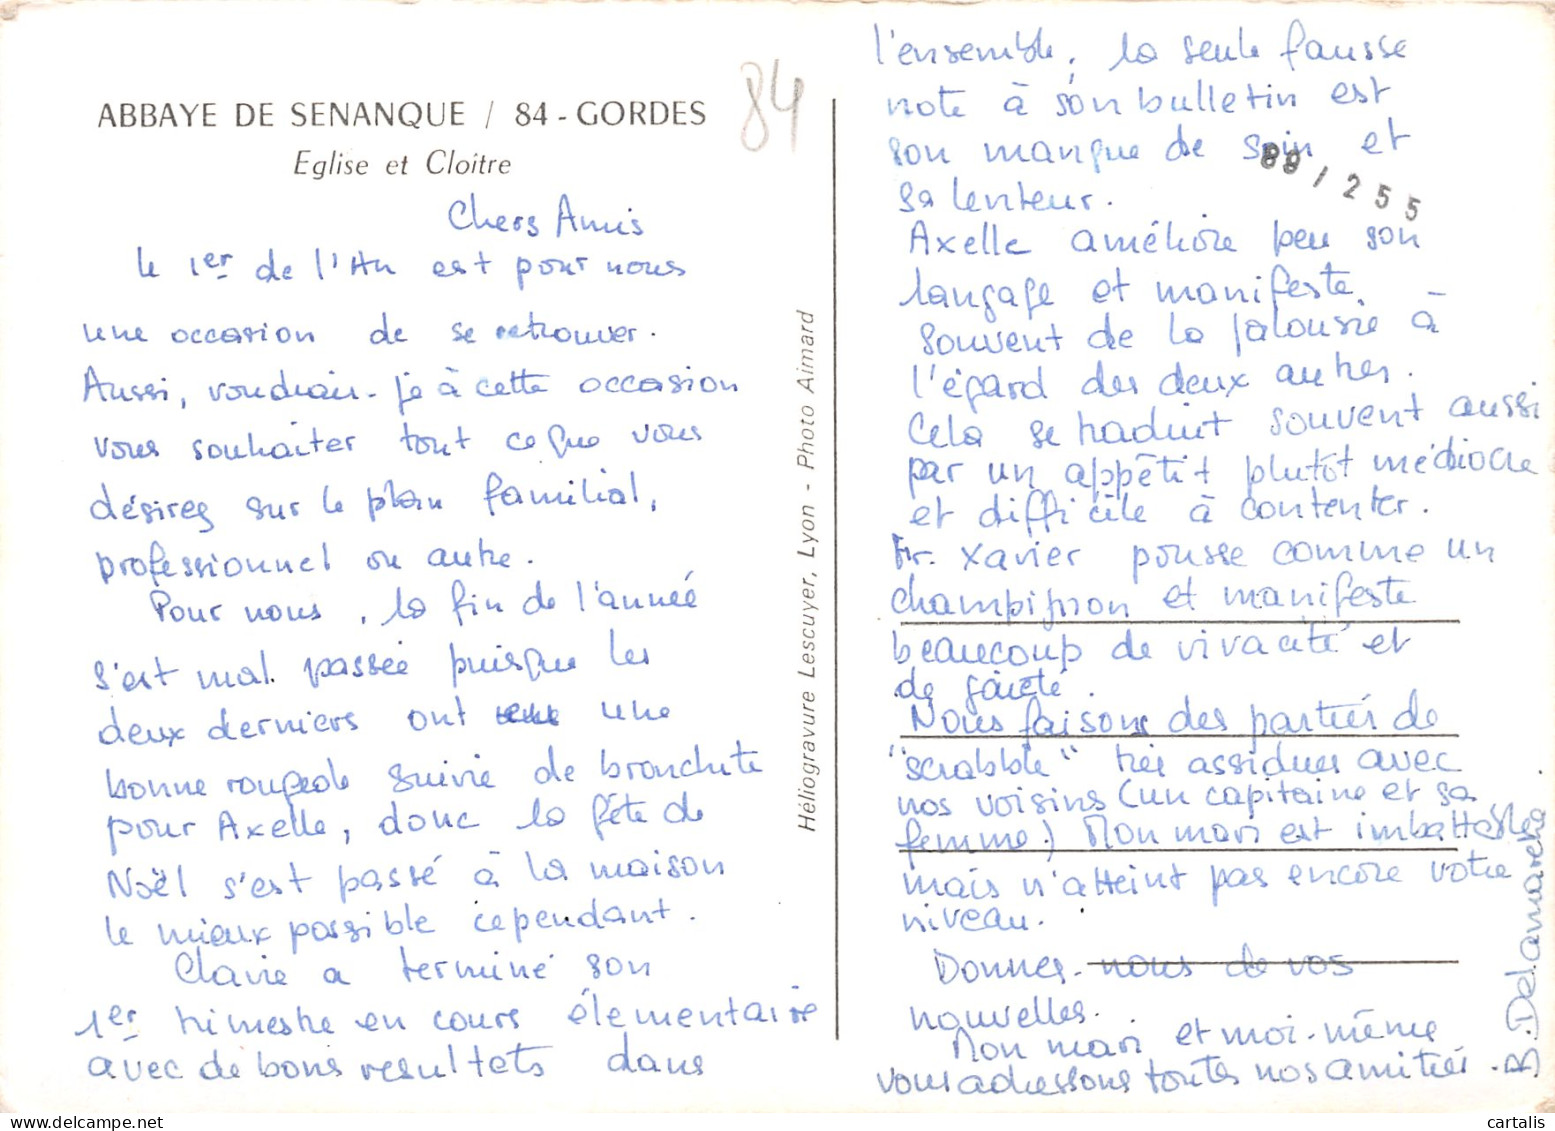 ABBAYE DE SENANQUE / 84 - GORDES
Eglise et Cloitre
84
Chers Amis
le 1er de l'An est pour nous
une occasion de se retrouver.
Aussi, voudrais-je à cette occasion
vous souhaiter tout ce que vous
désirez sur le plan familial,
professionnel ou autre.
Pour nous, la fin de l'année
s'est mal passée puisque les
deux derniers ont une
bonne rougeole suivie de bronchite
pour Axelle, donc la fête de
Noël s'est passé à la maison
le mieux possible cependant.
a terminé son
1er trimestre en cours élementaire
avec de bons resultets dans
Héliogravure Lescuyer, Lyon - Photo Aimard
l'ensemble, la seule fausse
note à son bulletin est
son manque de soin et
sa lenteur.
88 / 255
Axelle améliore peu son
langage et manifeste
souvent de la jalousie à
l'égard des deux autres.
Cela se traduit souvent aussi
par un appêtit plutôt médiocre
et difficile à contenter.
Fr. Xavier pousse comme un
champignon et manifeste
beaucoup de vivacité et
de gâieté.
Nous faisons des parties de
"scrabble" très assidues avec
nos voisins (un capitaine et sa
femme) Mon mari est imbattable
mais n'atteint pas encore votre
niveau.
Donnez-nous de vos
nouvelles.
Mon mari et moi-même
vous adressons toutes nos amitiés.
B. Delamarche.
cartalis